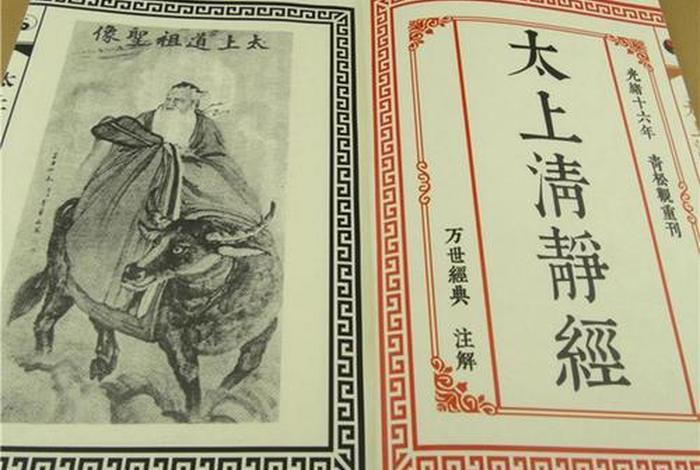 光緒十六年 青松觀重刊
太上清靜經
万世經典 注解
太上道祖聖像
太上